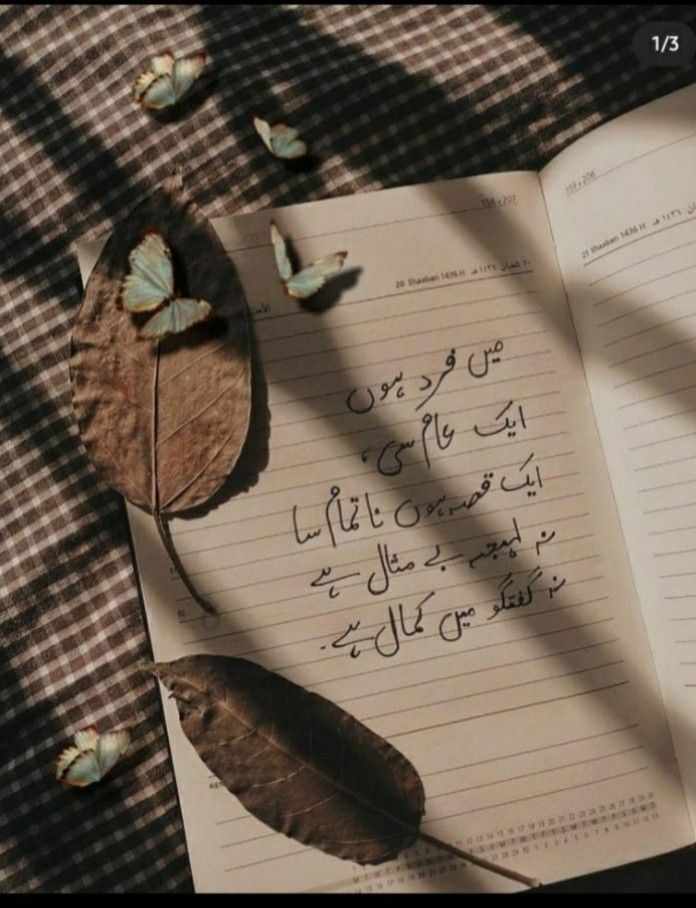 1/3
20 Shaaban 1436 H
21 Shaaban 1436 H
میں فرد ہوں
ایک عام سی،
ایک قصہ ہوں ناتمام سا
نہ لہجہ بے مثال ہے
نہ گفتگو میں کمال ہے۔